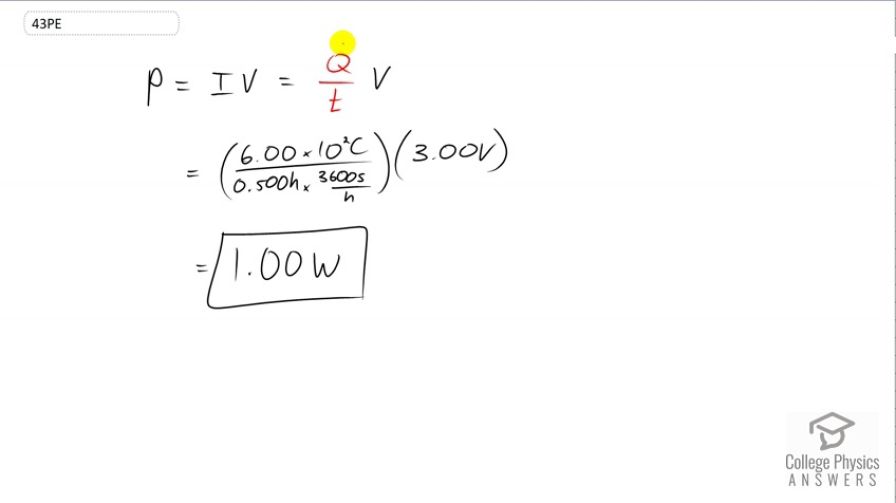 43PE
P = IV = Q/t V
= (6.00 × 10²C / 0.500h × 3600s/h)(3.00V)
= 1.00W
College Physics
ANSWERS